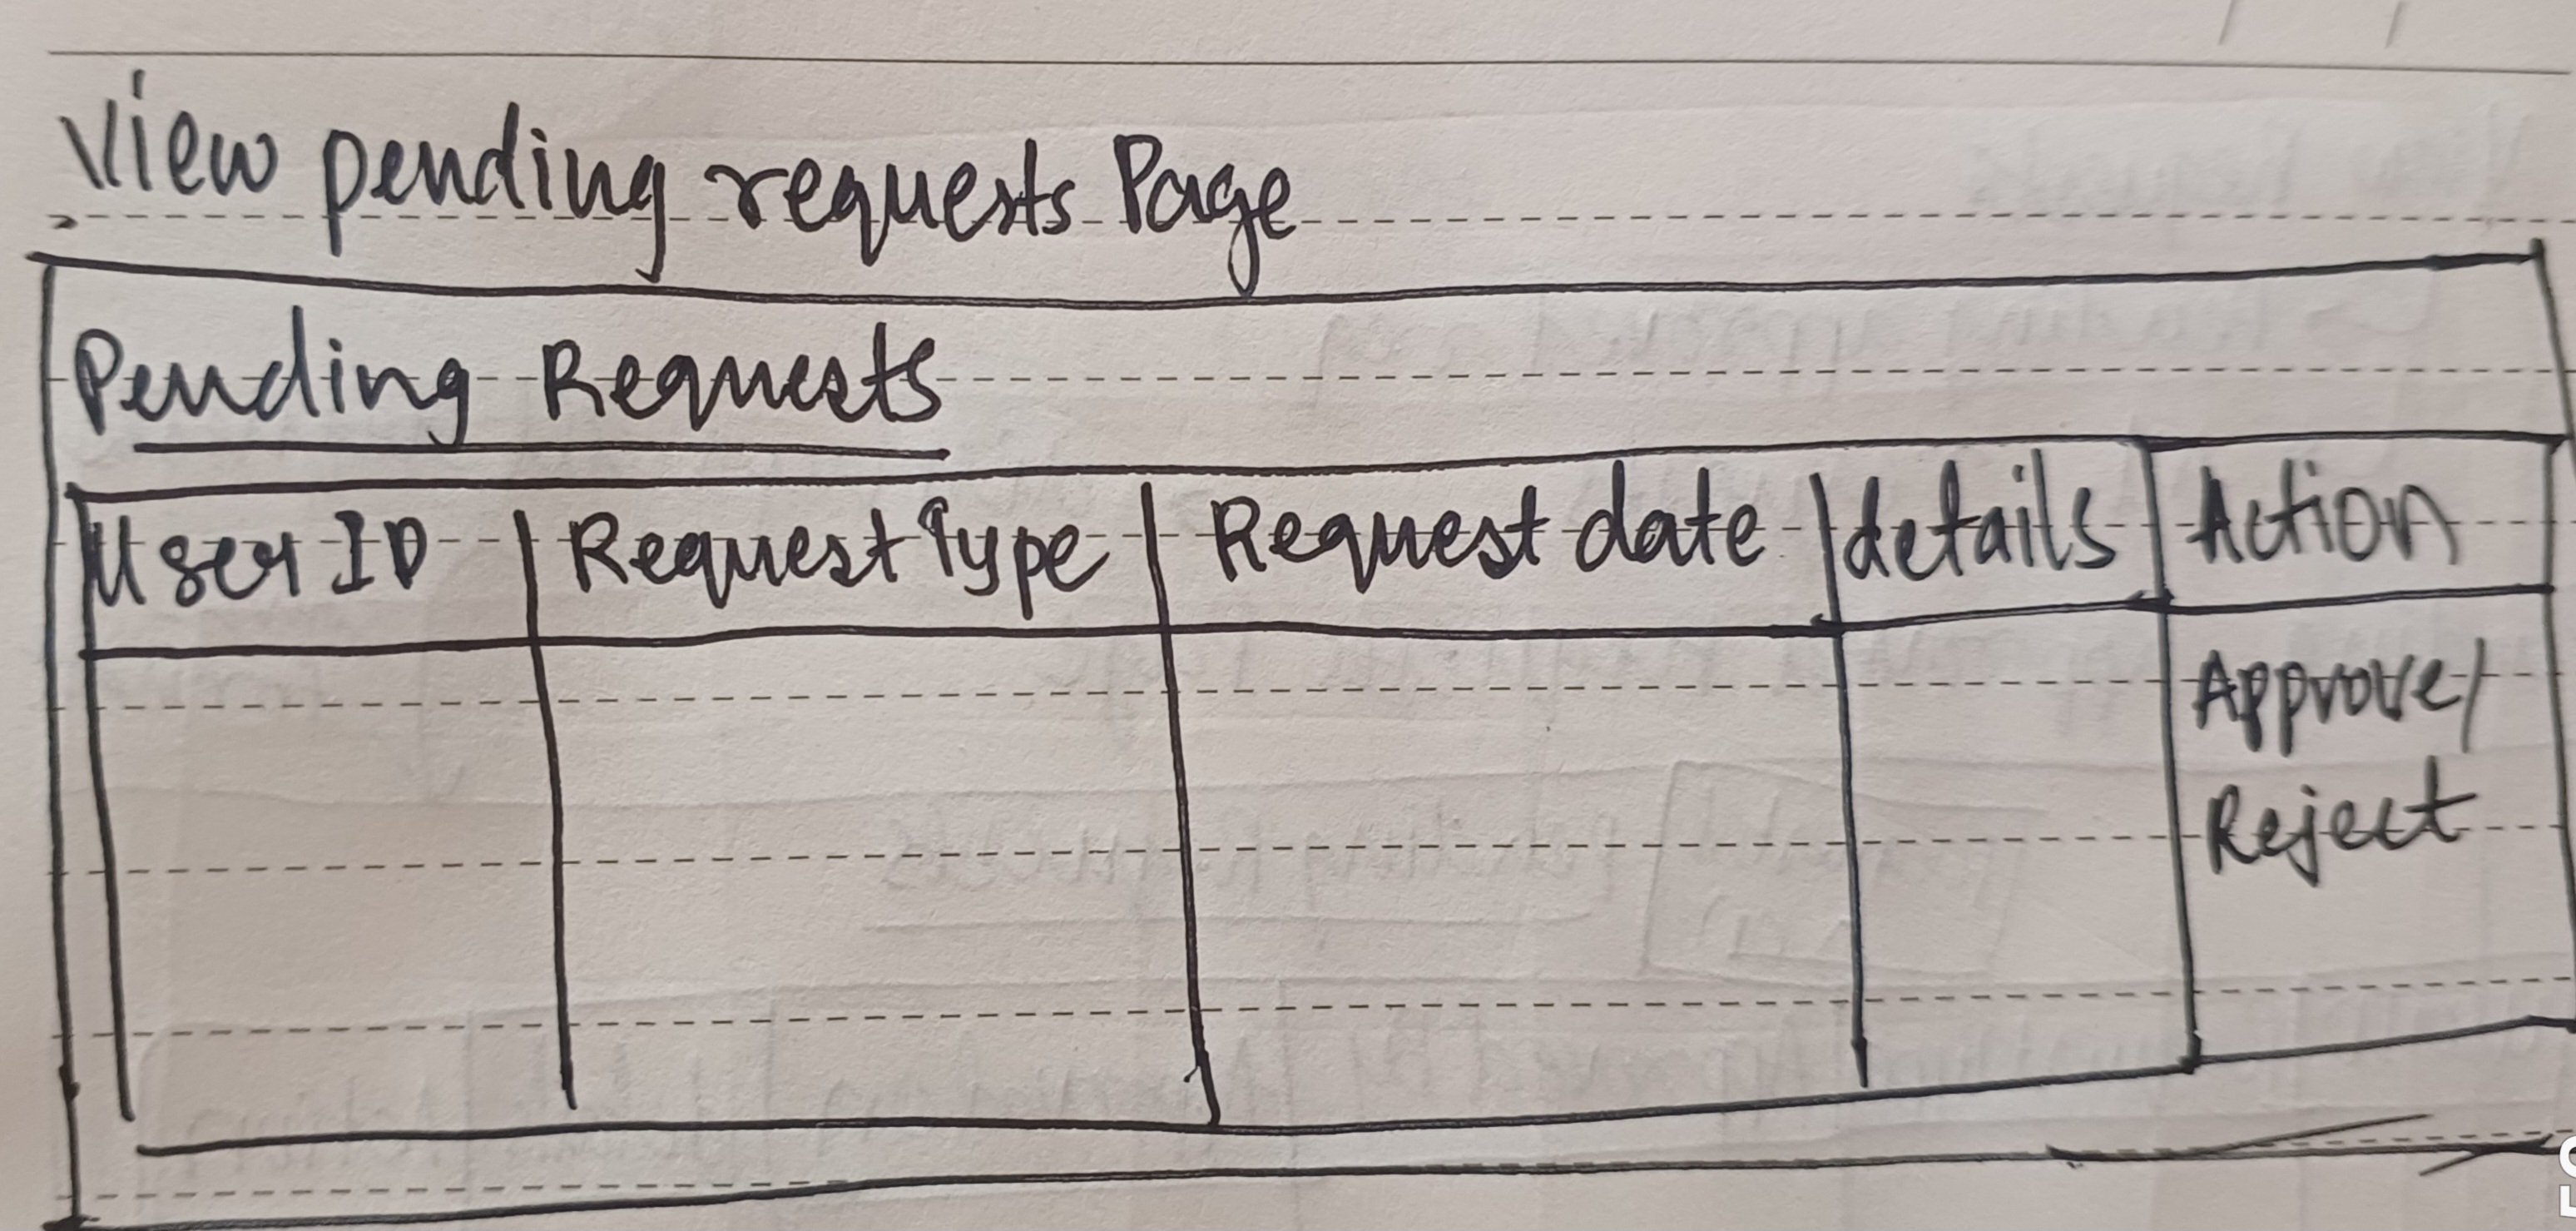 View pending requests Page
Pending Requests
User ID | Request Type | Request date | details | Action
Approve/
Reject